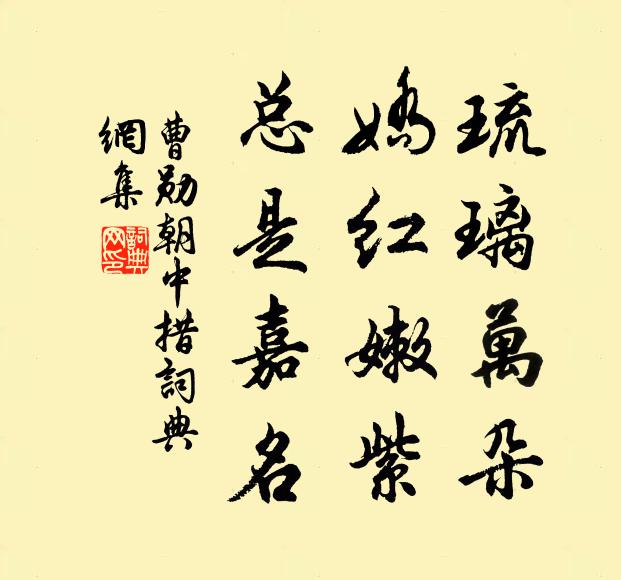 琉璃萬朵
嬌红嫩紫
总是嘉名
曹勋朝中措詞典
網集
詞典網印